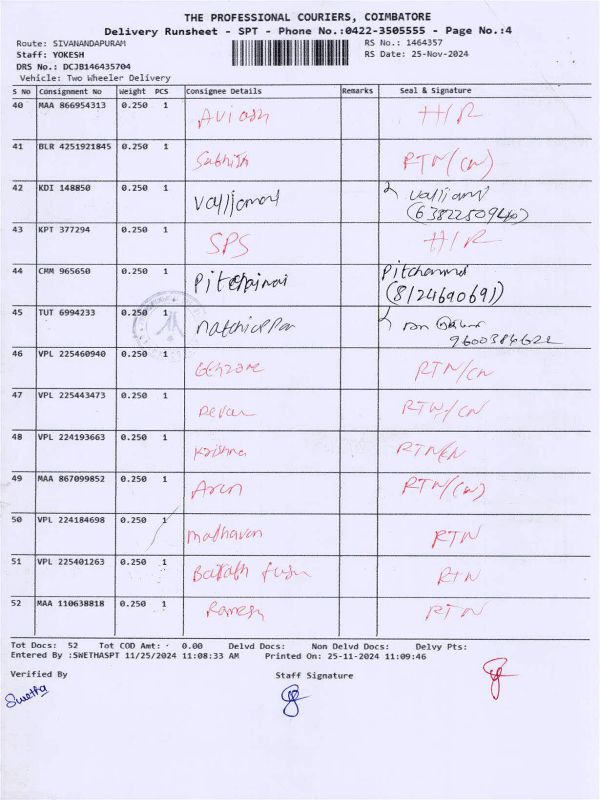 THE PROFESSIONAL COURIERS, COIMBATORE
Delivery Runsheet - SPT - Phone No.:0422-3505555 - Page No.:4
Route: SIVANANDAPURAM RS No.: 1464357
Staff: YOKESH RS Date: 25-Nov-2024
DRS No.: DCJB146435704
Vehicle: Two Wheeler Delivery
S No Consignment No Weight PCS Consignee Details Remarks Seal & Signature
40 MAA 866954313 0.250 1 Aviash H/R
41 BLR 4251921845 0.250 1 Sabhish RTN/(CN)
42 KDI 148850 0.250 1 valljamml valljamml
(6382250940)
43 KPT 377294 0.250 1 SPS H/R
44 CMM 965650 0.250 1 Pitchammal
(8124690691)
45 TUT 6994233 0.250 1 natchiappan
9600384622
46 VPL 225460940 0.250 1 RTN/CN
47 VPL 225443473 0.250 1 Devar RTN/CN
48 VPL 224193663 0.250 1 Krishna RTN/CN
49 MAA 867099852 0.250 1 Arun RTN/(CN)
50 VPL 224184698 0.250 1 madhavan RTN
51 VPL 225401263 0.250 1 RTN
52 MAA 110638818 0.250 1 Ramesh RTN
Tot Docs: 52 Tot COD Amt: 0.00 Delvd Docs: Non Delvd Docs: Delvy Pts:
Entered By :SWETHASPT 11/25/2024 11:08:33 AM Printed On: 25-11-2024 11:09:46
Verified By Staff Signature
Swetha